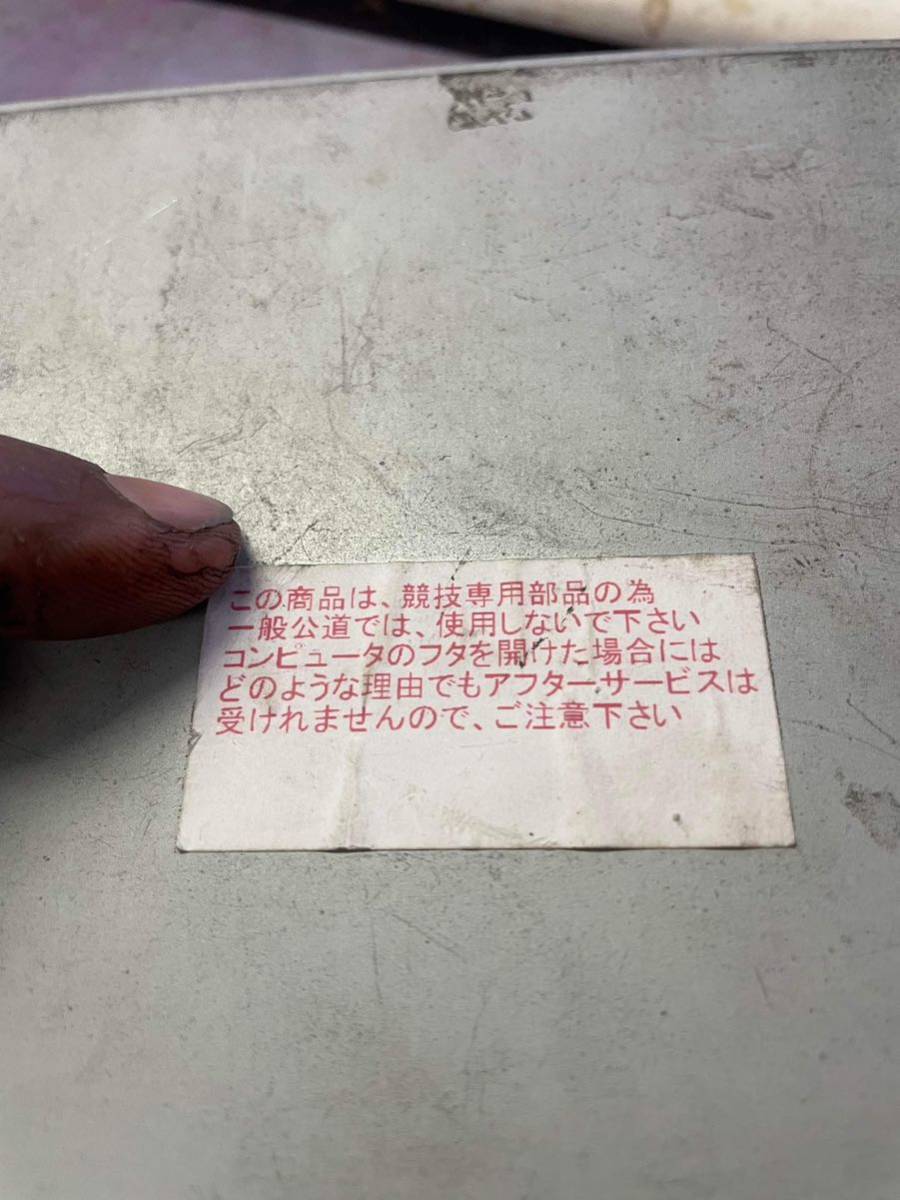 この商品は、競技専用部品の為
一般公道では、使用しないで下さい
コンピュータのフタを開けた場合には
どのような理由でもアフターサービスは
受けれませんので、ご注意下さい